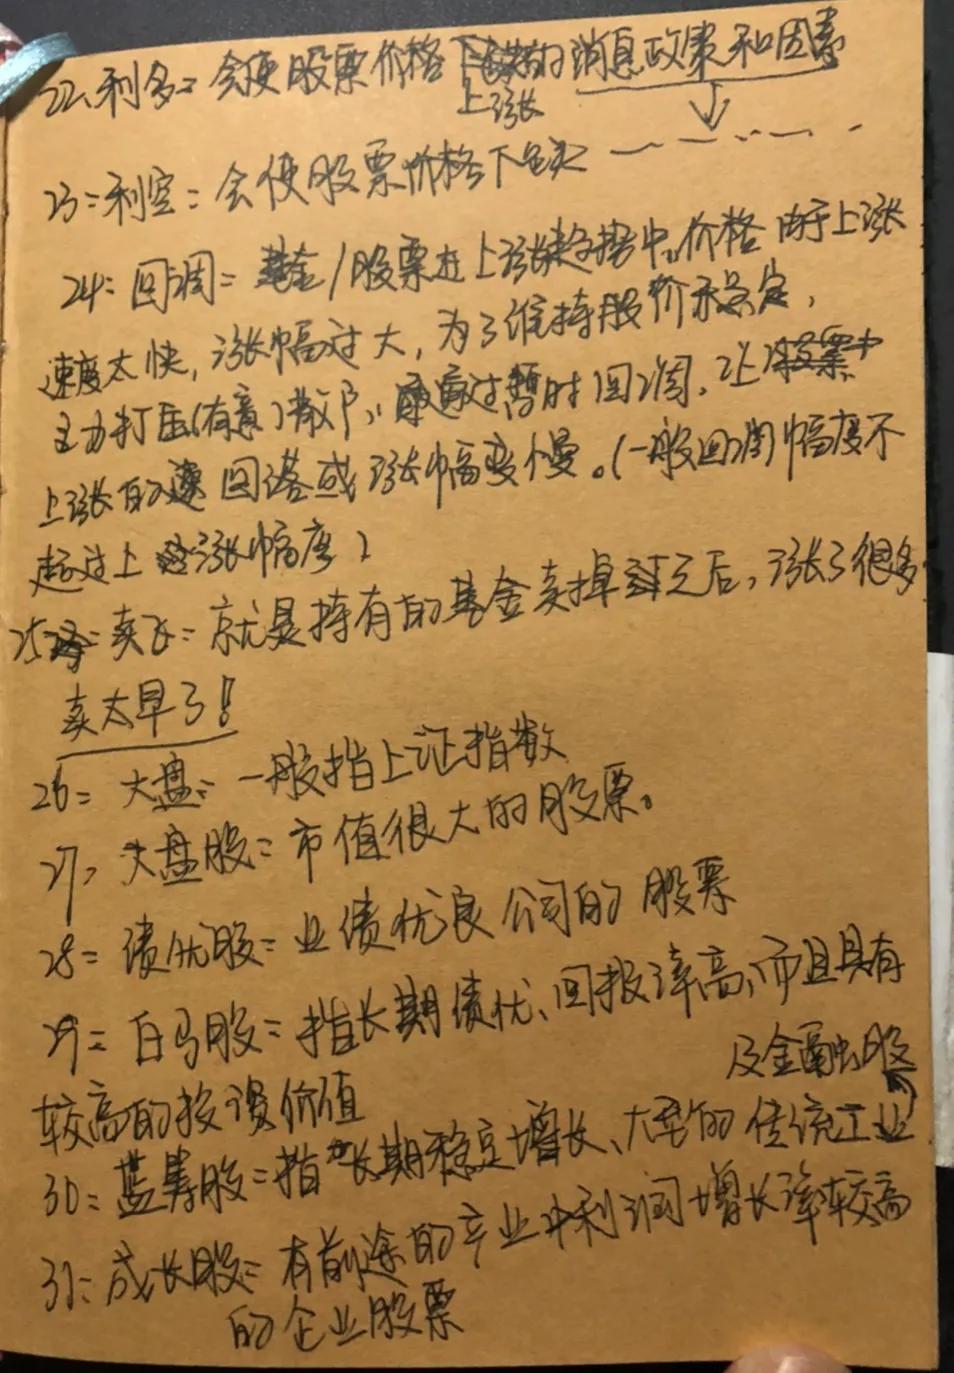 22、利多=会使股票价格下跌的消息政策和因素
上涨
23=利空=会使股票价格下跌 — — — — —
24=回调=基金/股票在上涨趋势中,价格由于上涨
速度太快,涨幅过大,为了维持股价示稳定,
主力打压(有意)散户,通过暂时回调,让股票
上涨的速回落或涨幅变慢。(一般回调幅度不
超过上涨幅度)
25=卖飞=就是持有的基金卖掉之后,涨了很多
卖太早了!
26=大盘=一般指上证指数
27、大盘股=市值很大的股票。
28=绩优股=业绩优良公司的股票
29=白马股=指长期绩优、回报率高,而且具有
较高的投资价值
及金融股
30=蓝筹股=指长期稳定增长、大型的传统工业
31=成长股=有前途的产业中利润增长率较高
的企业股票